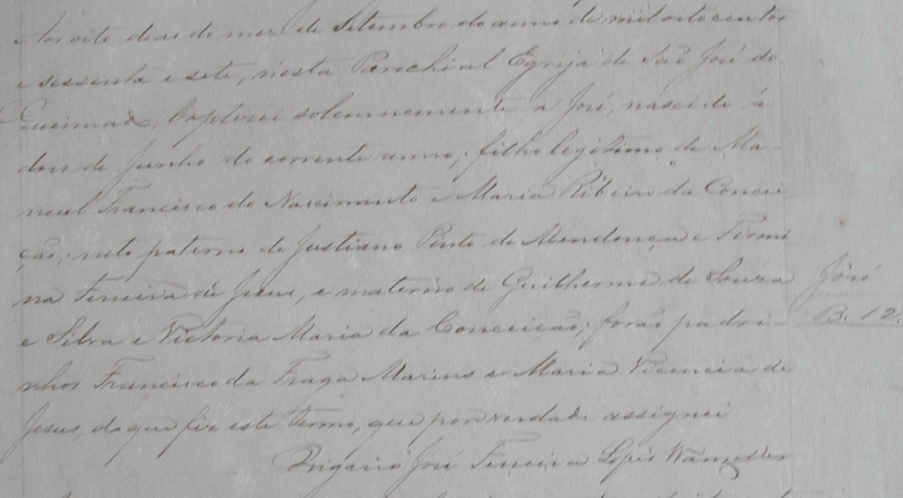 Aos oito dias do mez de Setembro do anno de mil oito centos
e sessenta e sete, nesta Parochial Egreja de São José do
Queimado, baptizei solemnemente a José, nascido à
dois de Junho do corrente anno; filho legitimo de Ma-
noel Francisco do Nascimento e Maria Ribeiro da Concei-
ção, neto paterno de Justiano Pinto de Mendonça e Firmi
na Ferreira de Jesus, e materno de Guilherme de Souza
e Silva e Victoria Maria da Conceição; forão padri-
nhos Francisco da Fraga Marins e Maria Vicencia de
Jesus, do que fiz este termo, que por verdade assignei
José Ferreira Lopes
José
B. 12.